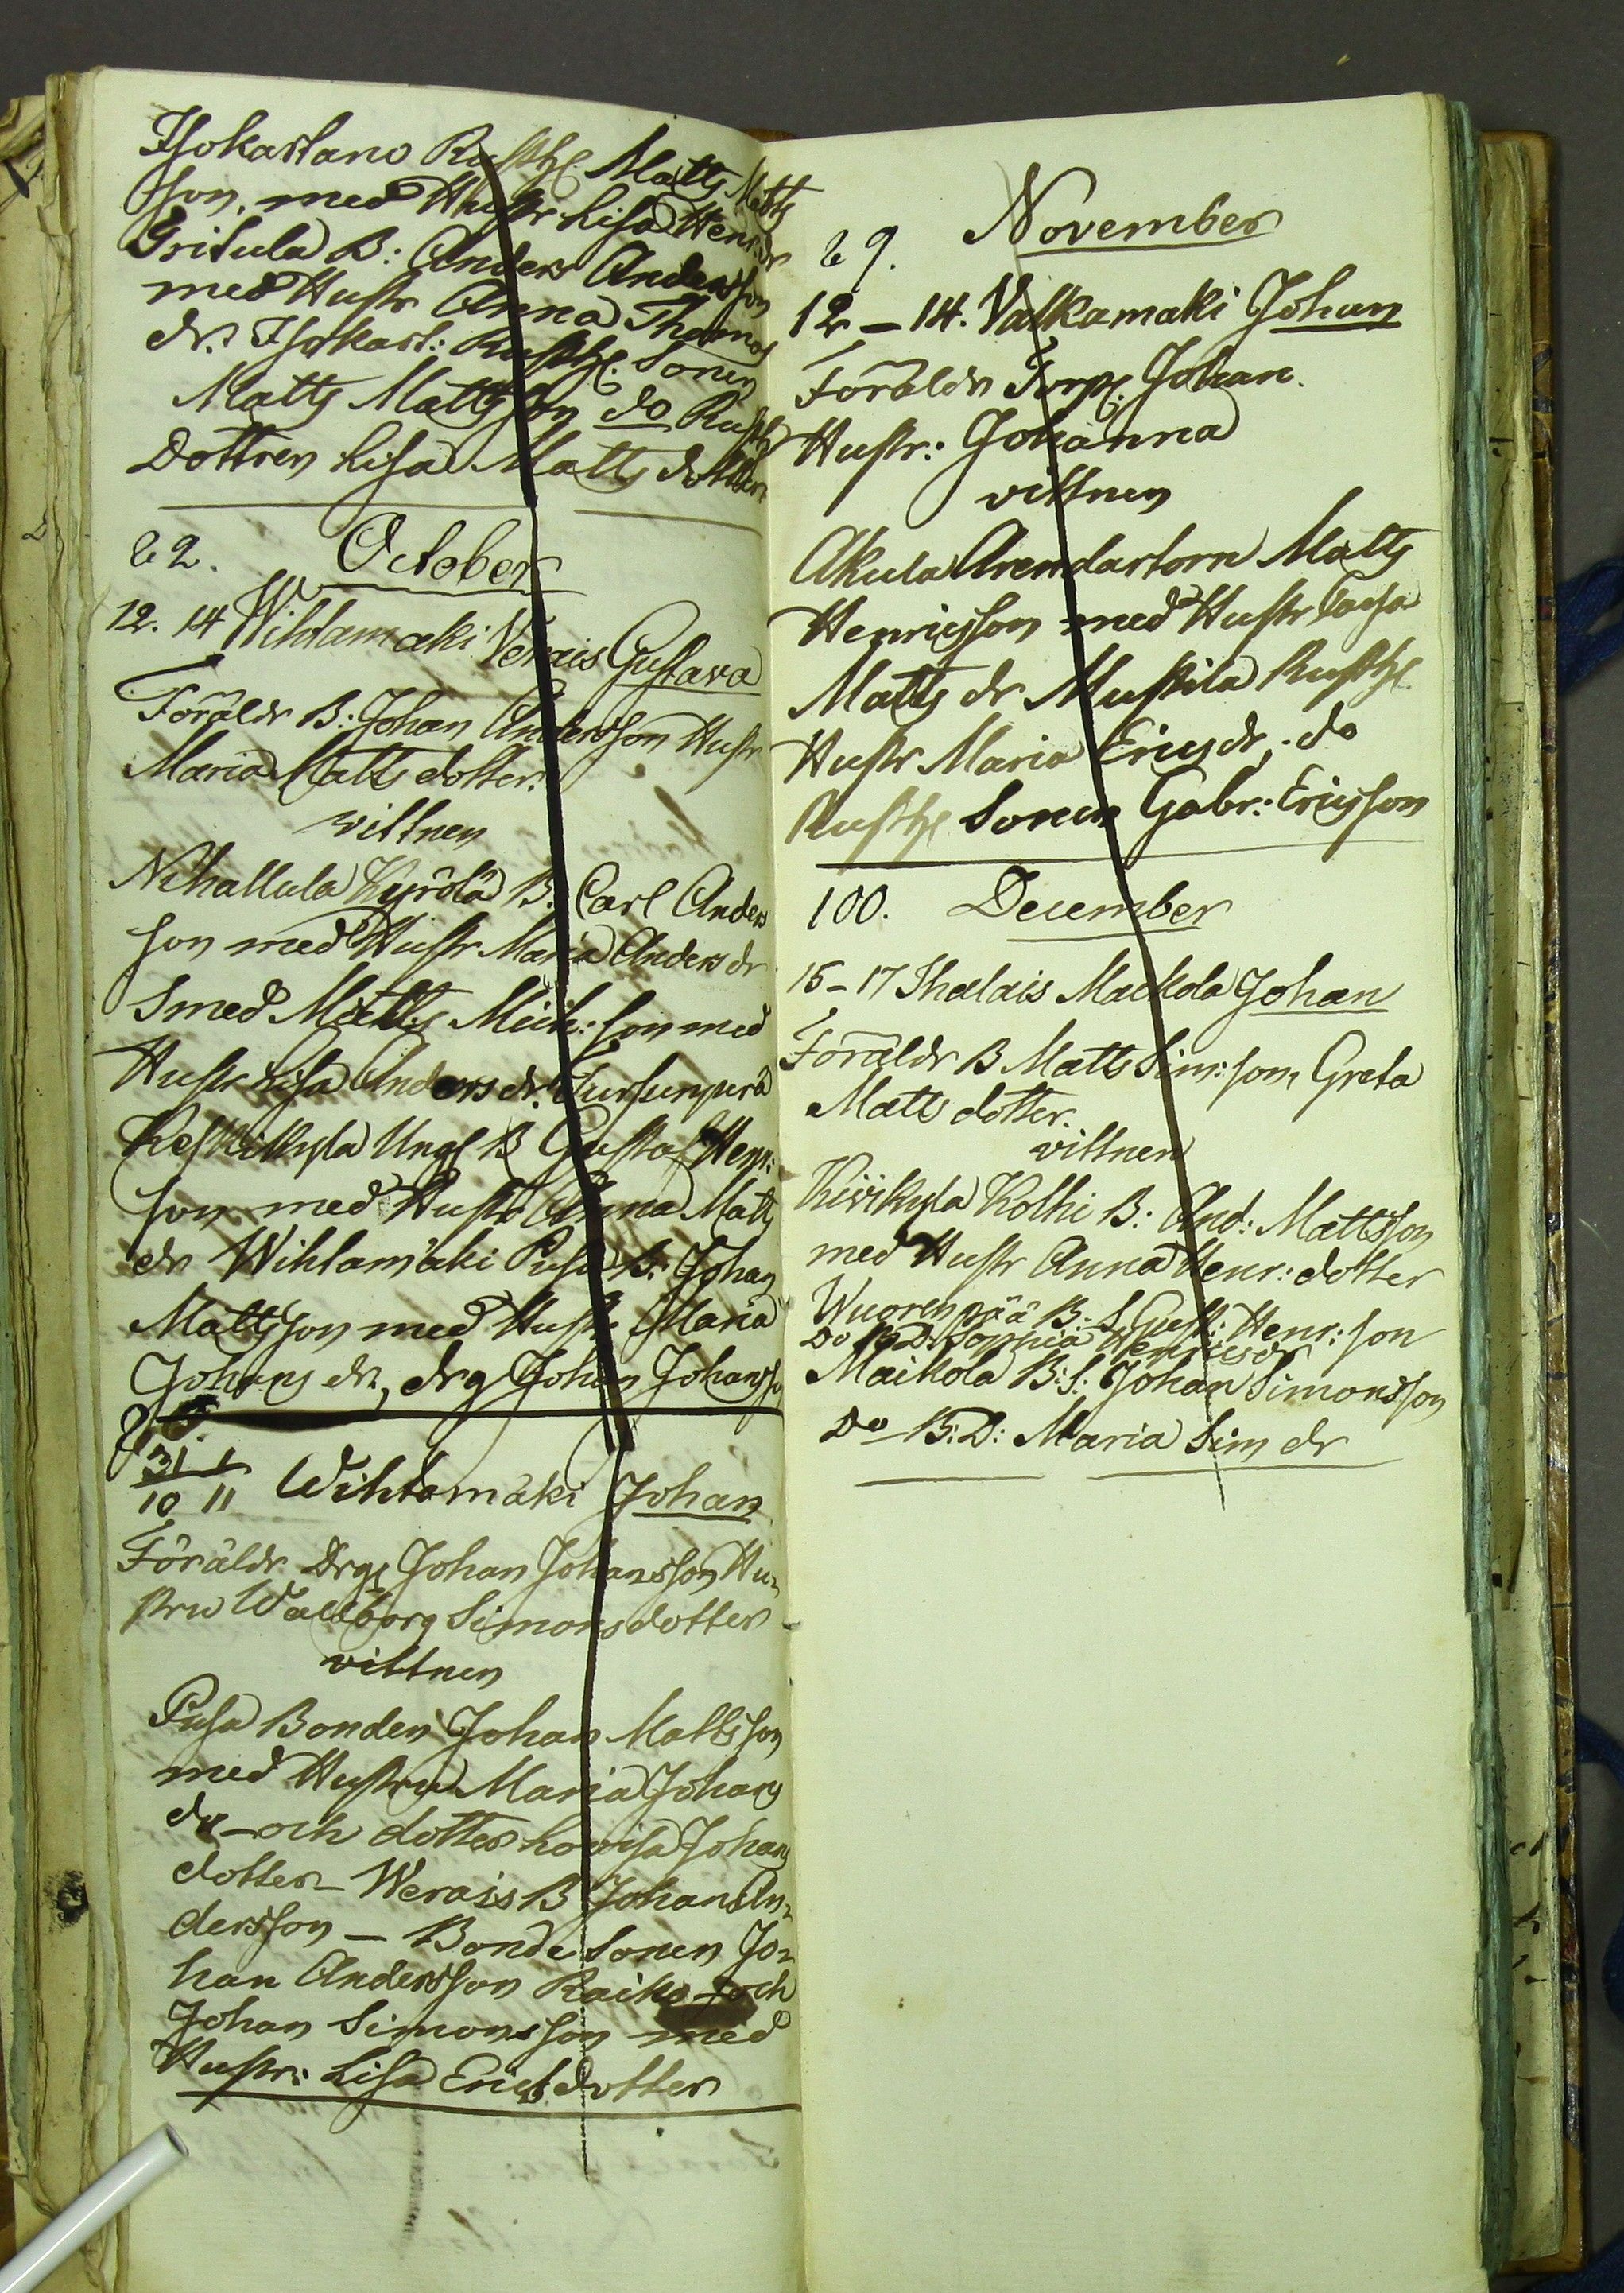 Isokartano Rusth. Matts Matts
son, med Hustr Lisa Henr: dr
Gritula B: Anders Andersson
med Hustr Anna Thomas
dr. Isokart: Rusth. Sonen
Matts Mattsson do Rusth
Dottren Lisa Matts dotter
October
12. 14 Wihtamäki Verais Gustava
Föräldr B: Johan Andersson Hustr
Maria Matts dotter.
vittnen
Nihattula Kyrölä B. Carl Anders
son med Hustr Maria Anders dr
Smed Matts Mich: son med
Hustr Lisa Anders dr. Tursunperä
Keskikyla Ungk B Gustaf Henr:
son med Hustr Anna Matts
dr Wihtamäki Pusa B. Johan
Mattsson med Hustr Maria
Johans dr, drg Johan Johansson
31 1
10 11 Wihtamäki Johan
Föräldr Drgs Johan Johansson Hu-
stru Wallborg Simons dotter -
vittnen
Pusa Bonden Johan Mattsson
med Hustru Maria Johans
dr - och dotter Lovisa Johans
dotter - Werais B Johan An-
dersson - Bonde sonen Jo-
han Andersson Raiko - och
Johan Simonsson med
Hustr: Lisa Ericsdotter
November
12 - 14. Valkamaki Johan
Föräldr Torp. Johan
Hustr: Johanna
vittnen
Akula Arendatorn Matts
Henricsson med Hustr Caisa
Matts dr Mustila Rusth.
Hustr Maria Erics dr, do
Rusth. Sonen Gabr: Ericsson
100. December
15 - 17 Thalais Maikola Johan
Föräldr B Matts Sim: son, Greta
Matts dotter.
vittnen
Kivikyla Kolhi B: And: Mattsson
med Hustr Anna Henr: dotter
Wuorenpää B: S Gust: Henr: son
Do B: D: Sophia Henrics dr
Maikola B: S: Johan Simonsson
Do B: D: Maria Sim dr